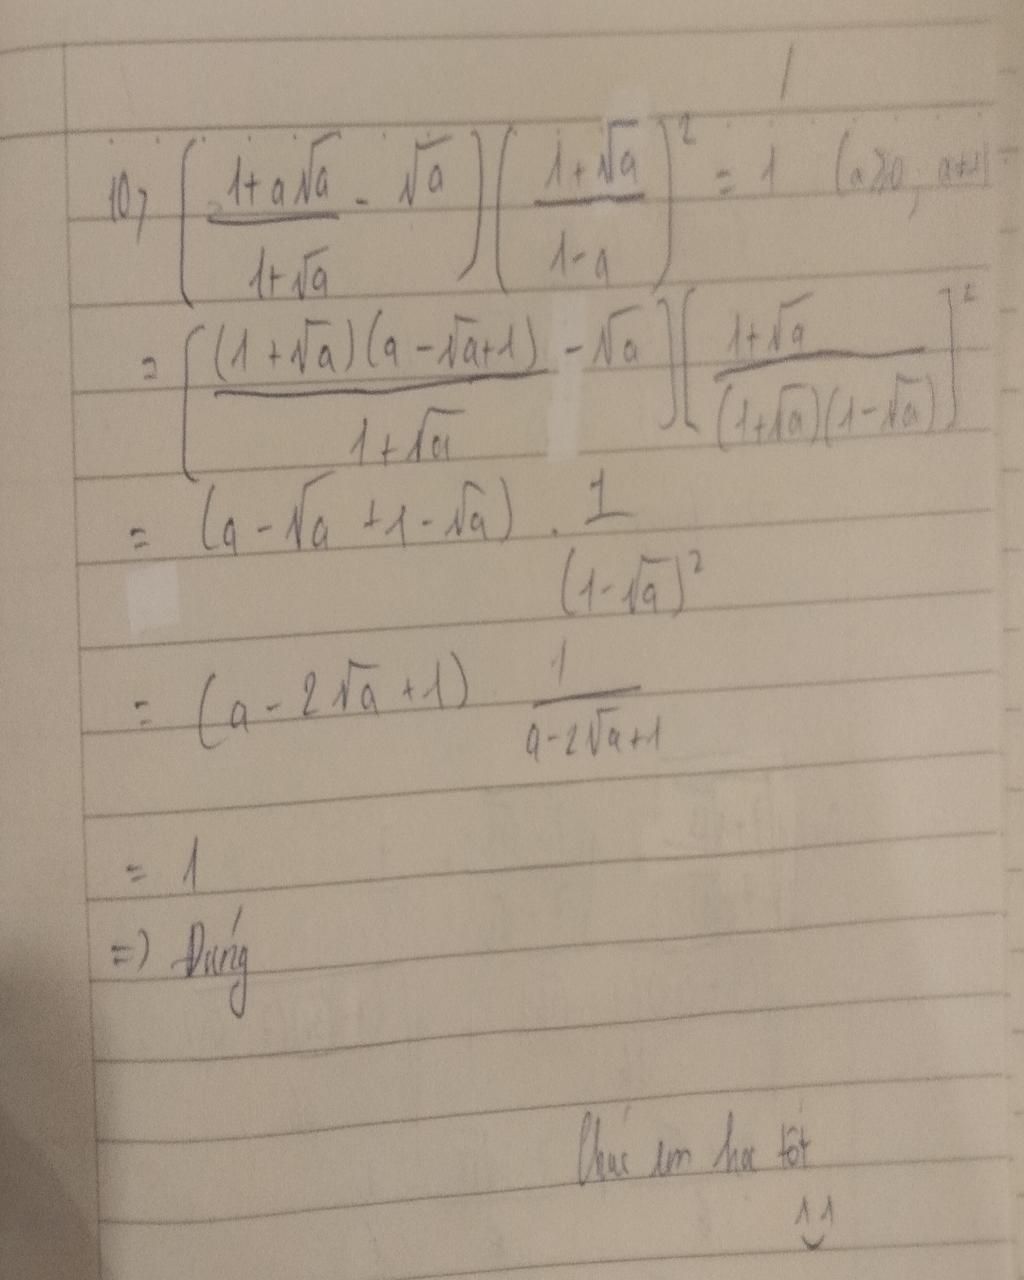 10, [(1+a√a)/(1+√a) - √a] [(1+√a)/(1-a)]² = 1 (a≥0, a≠1)
= [(1+√a)(a-√a+1)/(1+√a) - √a] [(1+√a)/((1+√a)(1-√a))]²
= (a-√a+1-√a) . 1/(1-√a)²
= (a-2√a+1) 1/(a-2√a+1)
= 1
=> Đúng
Chúc em học tốt